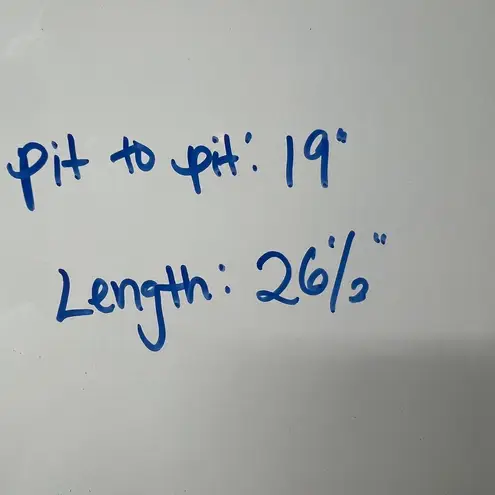 pit to pit: 19"
Length: 26 1/2"